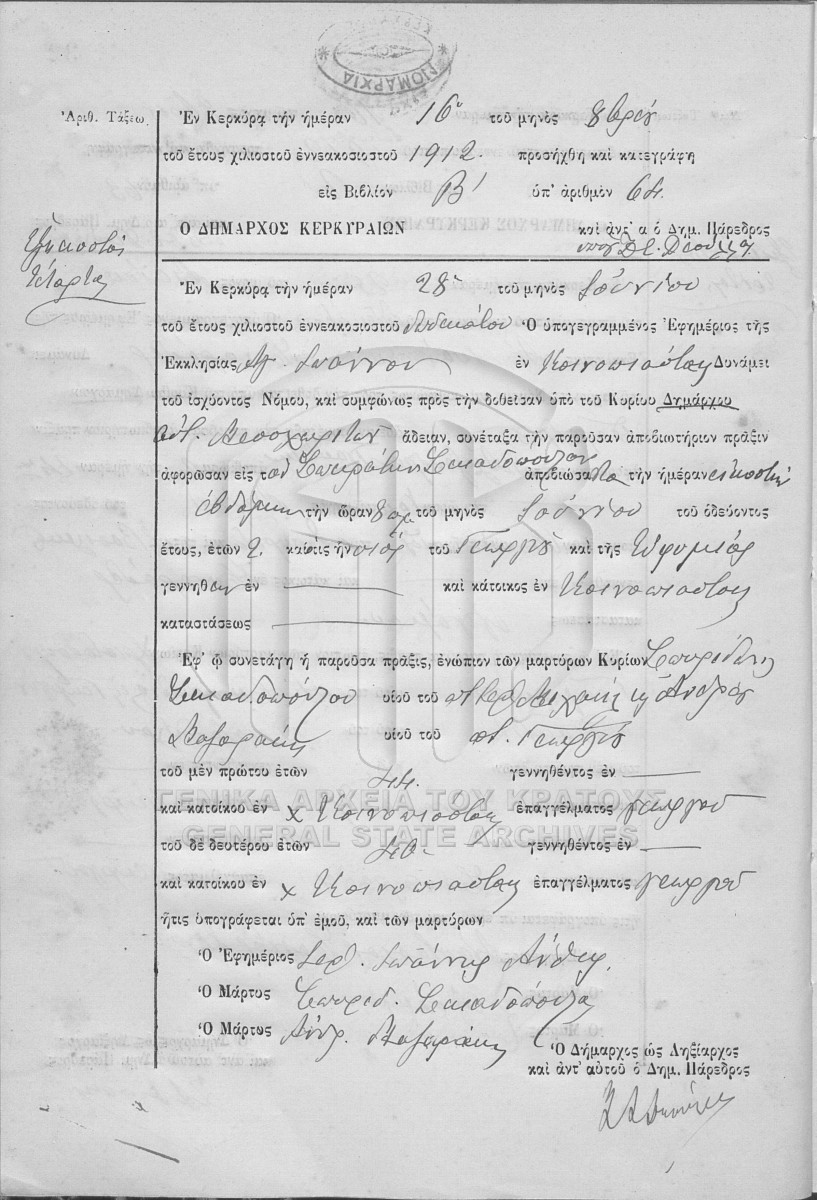 ΔΗΜΑΡΧΙΑ
Ἀριθ. Τάξεω
Ἐν Κερκύρᾳ τὴν ἡμέραν 16η τοῦ μηνὸς 8βρίου
τοῦ ἔτους χιλιοστοῦ ἐννεακοσιοστοῦ 1912. προσήχθη καὶ κατεγράφη
εἰς Βιβλίον Β' ὑπ' ἀριθμὸν 64.
Ο ΔΗΜΑΡΧΟΣ ΚΕΡΚΥΡΑΙΩΝ καὶ ἀντ' α ὁ Δημ. Πάρεδρος
Ἑξηκοστὸς
τέταρτος
Ἐν Κερκύρᾳ τὴν ἡμέραν 28η τοῦ μηνὸς Ἰουνίου
τοῦ ἔτους χιλιοστοῦ ἐννεακοσιοστοῦ δωδεκάτου Ὁ ὑπογεγραμμένος Ἐφημέριος τῆς
Ἐκκλησίας Ἁγ. Ἰωάννου ἐν Κοινοπιάσταις Δυνάμει
τοῦ ἰσχύοντος Νόμου, καὶ συμφώνως πρὸς τὴν δοθεῖσαν ὑπὸ τοῦ Κυρίου Δημάρχου
ἄδειαν, συνέταξα τὴν παροῦσαν ἀποβιωτήριον πρᾶξιν
ἀφορῶσαν εἰς τὸν Σωκράτην Σκιαδόπουλον ἀποβιώσαντα τὴν ἡμέραν εἰκοστὴν
ἑβδόμην τὴν ὥραν 8 μμ τοῦ μηνὸς Ἰουνίου τοῦ ὁδεύοντος
ἔτους, ἐτῶν 2. καὶ τις ἦν υἱὸς τοῦ Γεωργίου καὶ τῆς Εὐφημίας
γεννηθεν ἐν —— καὶ κάτοικος ἐν Κοινοπιάσταις
καταστάσεως ——
Ἐφ' ᾧ συνετάγη ἡ παροῦσα πρᾶξις, ἐνώπιον τῶν μαρτύρων Κυρίων Σπυρίδωνος
Σκιαδοπούλου υἱοῦ τοῦ Μιχαὴλ κ Ἀνδρέου
Μαζαράκη υἱοῦ τοῦ π. Γεωργίου
τοῦ μὲν πρώτου ἐτῶν 44. γεννηθέντος ἐν ——
καὶ κατοίκου ἐν χ Κοινοπιάσταις ἐπαγγέλματος γεωργοῦ
ΓΕΝΙΚΑ ΑΡΧΕΙΑ ΤΟΥ ΚΡΑΤΟΥΣ
GENERAL STATE ARCHIVES
τοῦ δὲ δευτέρου ἐτῶν 40 γεννηθέντος ἐν ——
καὶ κατοίκου ἐν χ Κοινοπιάσταις ἐπαγγέλματος γεωργοῦ
ἥτις ὑπογράφεται ὑπ' ἐμοῦ, καὶ τῶν μαρτύρων
Ὁ Ἐφημέριος Ἰωάννης
Ὁ Μάρτυς Σπυρίδ. Σκιαδόπουλος
Ὁ Μάρτυς Ἀνδρ. Μαζαράκης
Ὁ Δήμαρχος ὡς Ληξίαρχος
καὶ ἀντ' αὐτοῦ ὁ Δημ. Πάρεδρος